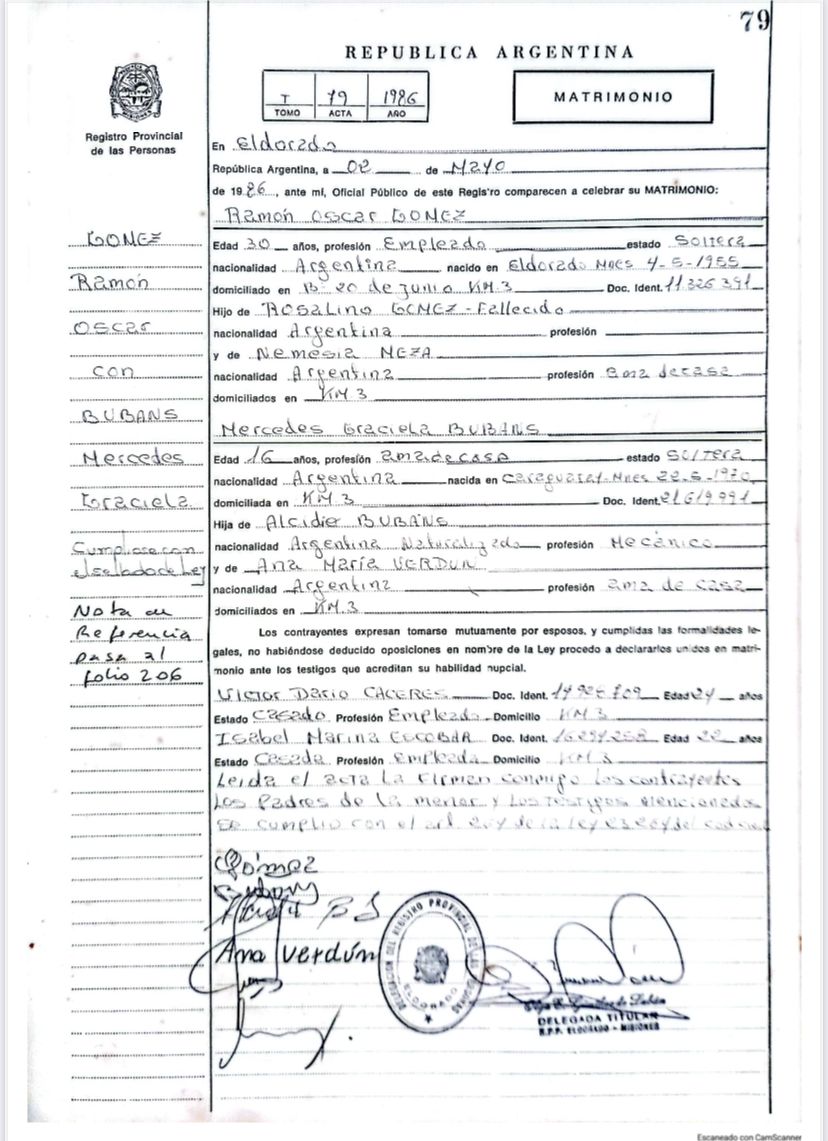 79
REPUBLICA ARGENTINA
T 79 1986
TOMO ACTA AÑO
MATRIMONIO
MISIONES
Registro Provincial
de las Personas
En Eldorado
República Argentina, a 02 de MAYO
de 1986, ante mí, Oficial Público de este Registro comparecen a celebrar su MATRIMONIO:
Ramón Oscar GOMEZ
GOMEZ
Ramón
Oscar
con
BUBANS
Mercedes
Graciela
Cumpliose con
el sellado de Ley
Nota de
Referencia
pasa al
folio 206
Edad 30 años, profesión Empleado estado Soltera
nacionalidad Argentina nacido en Eldorado Mnes 4-5-1955
domiciliado en B. 20 de junio KM.3 Doc. Ident. 11326391
Hijo de Rosalino GOMEZ - Fallecido
nacionalidad Argentina profesión
y de Nemesia MEZA
nacionalidad Argentina profesión ama de casa
domiciliados en KM 3
Mercedes Graciela BUBANS
Edad 16 años, profesión ama de casa estado Soltera
nacionalidad Argentina nacida en Caraguatay-Mnes
domiciliada en KM 3 Doc. Ident. 21619991
Hija de Alcidier BUBANS
nacionalidad Argentina Naturalizado profesión Mecánico
y de Ana María VERDUN
nacionalidad Argentina profesión ama de casa
domiciliados en KM 3
Los contrayentes expresan tomarse mutuamente por esposos, y cumplidas las formalidades le-
gales, no habiéndose deducido oposiciones en nombre de la Ley procedo a declararlos unidos en matri-
monio ante los testigos que acreditan su habilidad nupcial.
Victor Dario CACERES Doc. Ident. Edad 24 años
Estado Casado Profesión Empleado Domicilio KM 3
Isabel Marina ESCOBAR Doc. Ident. Edad 22 años
Estado Casada Profesión Empleada Domicilio KM 3
Leida el acta la Firman conmigo los contrayentes
Los Padres de la menor y los Testigos mencionados
se cumplio con el art. de la ley 23 264 del
Gómez
Ana Verdún
DELEGACION DEL REGISTRO PROVINCIAL DE LAS PERSONAS
ELDORADO
DELEGADA TITULAR
R.P.P. ELDORADO - MISIONES
Escaneado con CamScanner